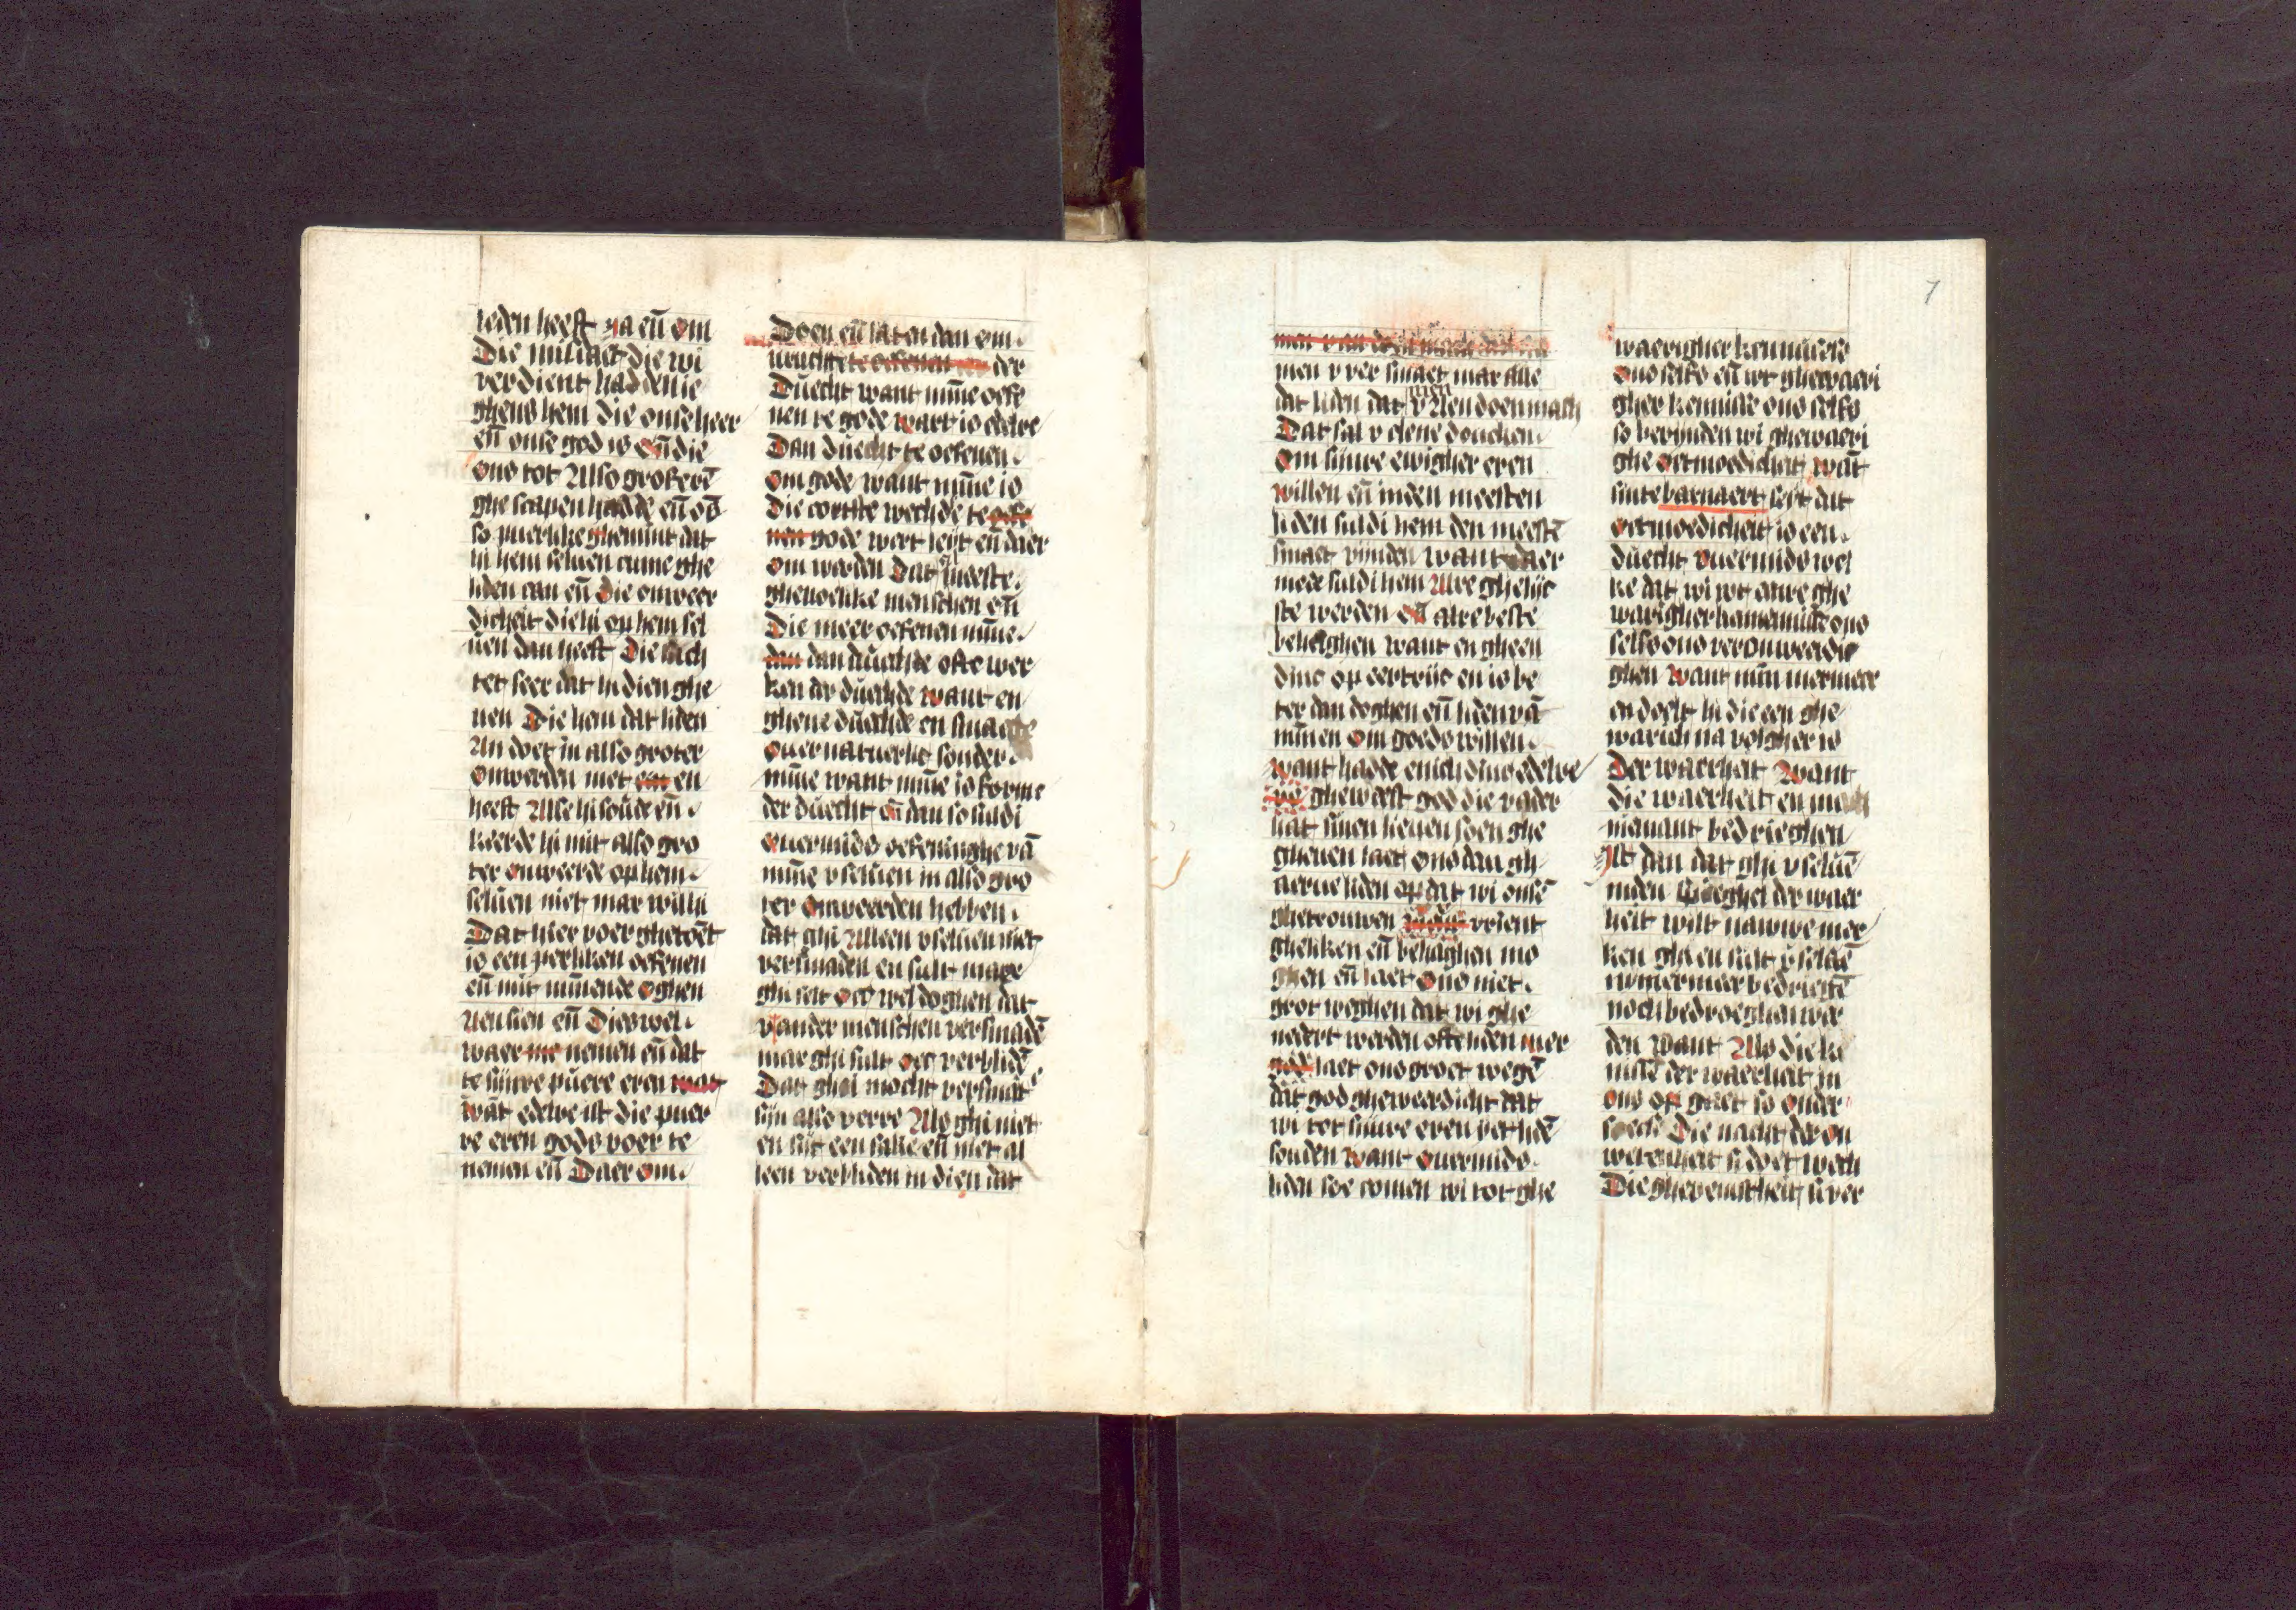 leden heeft ya eñ om
Die miltheit die wi
verdient hadden ie
ghens hem die onse heer
eñ onse god is eñ die
ons tot Also groterē
ghescapen hadde eñ oēc
so puerlike ghemint dat
hi hem seluen cume ghe
liden can eñ die onweer
dicheit die hi op hem sel
uen dan heeft Die such
tet seer dat hi dien ghe
nen Die hem dat liden
An doet in also groter
onweerden niet en
heeft Alse hi soude eñ
keerde hi mit also gro
ter onweerde op hem
seluen niet mar wil hi
Dat hier voer ghetoēt
is een perliken oefenen
eñ mit minnende oghen
Aensien eñ Dies wel
waer nemen eñ dat
te sijnre puere eren
wāt edelre ist die puer
re eren gods voer te
nemen eñ Daer om
Doen eñ laten dan om
vruchte te oefenen der
Duecht want mīne oefe
nen te gode wart is edelre
Dan duecht te oefenen
om gode want mīne is
Die cortste wech de te oefe
nen gode wert leyt eñ daer
om werden Dat meeste
gheuoelike menschen eñ
Die meer oefenen mīne
dan dan duechde ofte wer
ken der duechde want en
ghene duechde en smaect
ouernatuerlic sonder
mīne want mīne is forme
der duecht eñ dan so suldi
ouermids oefeninghe vā
mīne v seluen in also gro
ter onweerden hebben
dat ghi Alleen v seluen niet
versmaden en sult mare
ghi selt oec wel doghen dat
v ander menschen versmadē
mar ghi sult oec verblidē
Dat ghi mocht versmaet
sijn also verre Als ghi niet
en sijt een sake eñ niet al
leen verbliden in dien dat
men v ver smaet mar alle
dat liden dat men v Aen doen mach
Dat sal v clene duncken
om sijnre ewigher eren
willen eñ inden meesten
liden suldi hem den meestē
smaet vijnden want daer
mede suldi hem Alre ghelijc
ste werden eñ alre beste
behaghen want en gheen
dinc op eertrijc en is be
ter dan doghen eñ liden vā
mīnen om goeds willen
want hadde enich dinc edelre
gheweest god die vader
hat sinen lieuen soen ghe
gheuen laet ons dan ghe
aerne liden op dat wi onsē
ghetrouwen vrient
ghelíken eñ behaghen mo
ghen eñ laet ons niet
grot weghen dat wi ghe
nedert werden ofte liden mer
laet ons groet wegē
dat god gheweerdicht dat
wi tot sijnre eren yet lidē
souden want ouermids
liden soe comen wi tot ghe
7
waerigher kennisse
ons selfs eñ wt ghewaeri
gher kennisse ons selfs
so vernijnden wi ghewaeri
ghe oetmoedicheit wāt
sinte baernaert seit dat
oetmoedicheit is een
duecht ouermids wel
ke dat wi wt alre ghe
warigher kennisse ons
selfs ons veronweerdi
ghen want nummermeer
en doelt hi die een ghe
warich na volgher is
Der waerheit want
die waerheit en mach
niemant bedrieghen
Ist dan dat ghi v seluē
inden spieghel der waer
heit wilt nauwe mer
ken ghi en sult v seluē
nummermeer bedriegē
noch bedroeghen wer
den want Als die ken
nissē der waerheit in
ons op gaet so onder
soect Die nacht der on
wetenheit si doet wech
Die gheveinstheit si ver